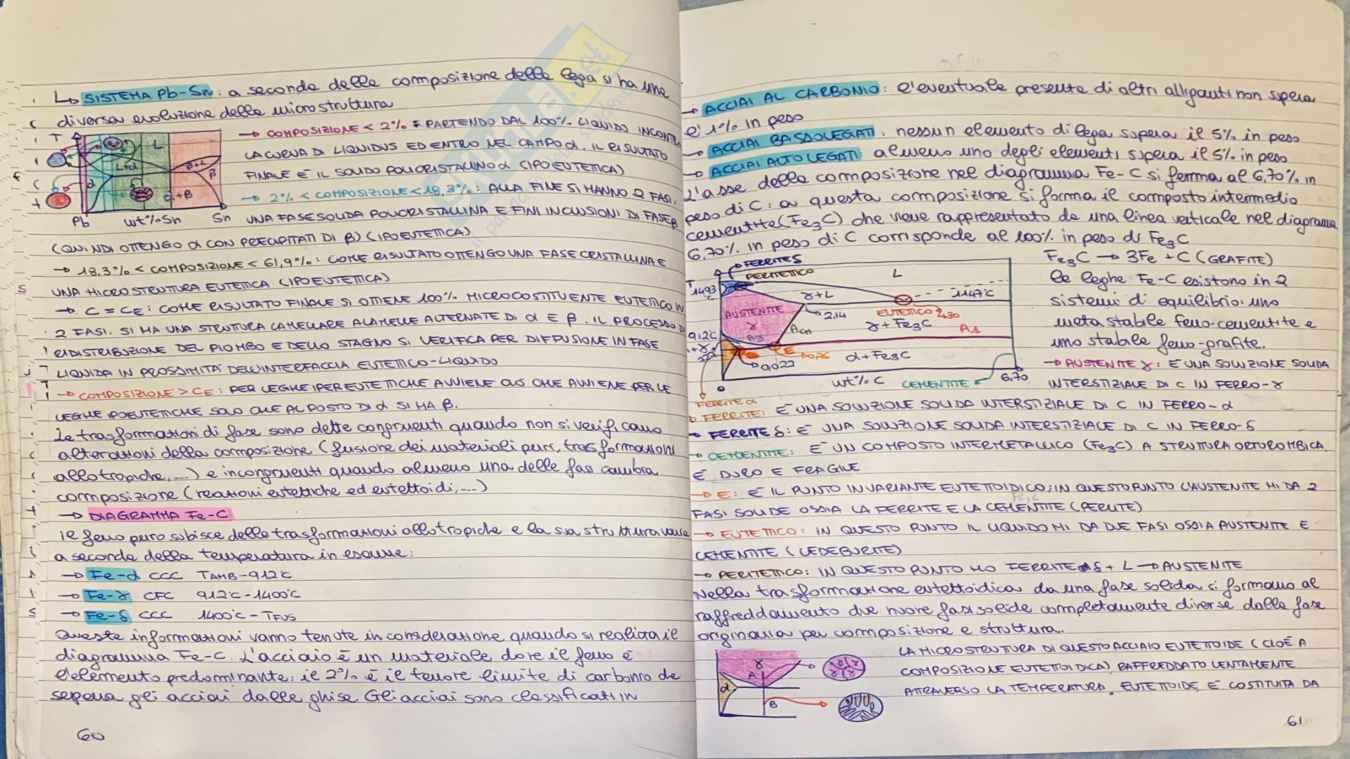 ↳ SISTEMA Pb-Sn: a seconda della composizione della lega si ha una
diversa evoluzione della microstruttura
→ COMPOSIZIONE < 2% = PARTENDO DAL 100% LIQUIDO INCONTRO
LA CURVA DI LIQUIDUS ED ENTRO NEL CAMPO α. IL RISULTATO
FINALE È IL SOLIDO POLICRISTALLINO α (IPOEUTETICA)
→ 2% < COMPOSIZIONE < 18,3%: ALLA FINE SI HANNO 2 FASI,
UNA FASE SOLIDA POLICRISTALLINA E FINI INCLUSIONI DI FASE β
T
L
α+L
β+L
α
β
α+β
Pb wt% Sn Sn
(QUINDI OTTENGO α CON PRECIPITATI DI β) (IPOEUTETICA)
→ 18,3% < COMPOSIZIONE < 61,9%: COME RISULTATO OTTENGO UNA FASE CRISTALLINA E
UNA MICROSTRUTTURA EUTETICA (IPOEUTETICA)
→ C = CE: COME RISULTATO FINALE SI OTTIENE 100% MICROCOSTITUENTE EUTETICO IN
2 FASI. SI HA UNA STRUTTURA LAMELLARE A LAMELLE ALTERNATE DI α E β. IL PROCESSO DI
RIDISTRIBUZIONE DEL PIOMBO E DELLO STAGNO SI VERIFICA PER DIFFUSIONE IN FASE
LIQUIDA IN PROSSIMITÀ DELL'INTERFACCIA EUTETICO-LIQUIDO
→ COMPOSIZIONE > CE: PER LEGHE IPEREUTETICHE AVVIENE CIÒ CHE AVVIENE PER LE
LEGHE IPOEUTETICHE SOLO CHE AL POSTO DI α SI HA β.
Le trasformazioni di fase sono dette congruenti quando non si verificano
alterazioni della composizione (fusione dei materiali puri, trasformazioni
allotropiche, ...) e incongruenti quando almeno una delle fasi cambia
composizione (reazioni eutettiche ed eutettoidi, ...)
→ DIAGRAMMA Fe-C
Il ferro puro subisce delle trasformazioni allotropiche e la sua struttura varia
a seconda della temperatura in esame:
→ Fe-α CCC TAMB-912°C
→ Fe-γ CFC 912°C-1400°C
→ Fe-δ CCC 1400°C-TFUS
Queste informazioni vanno tenute in considerazione quando si realizza il
diagramma Fe-C. L'acciaio è un materiale dove il ferro è
l'elemento predominante, il 2% è il tenore limite di carbonio che
separa gli acciai dalle ghise. Gli acciai sono classificati in
60
→ ACCIAI AL CARBONIO: l'eventuale presenza di altri alliganti non supera
l'1% in peso
→ ACCIAI BASSOLEGATI: nessun elemento di lega supera il 5% in peso
→ ACCIAI ALTO LEGATI almeno uno degli elementi supera il 5% in peso
L'asse della composizione nel diagramma Fe-C si ferma al 6,70% in
peso di C: a questa composizione si forma il composto intermedio
cementite (Fe3C) che viene rappresentato da una linea verticale nel diagramma
6,70% in peso di C corrisponde al 100% in peso di Fe3C
Fe3C → 3Fe + C (GRAFITE)
le leghe Fe-C esistono in 2
sistemi di equilibrio: uno
metastabile ferro-cementite e
uno stabile ferro-grafite.
→ AUSTENITE γ: È UNA SOLUZIONE SOLIDA
INTERSTIZIALE DI C IN FERRO-γ
T
FERRITE δ
PERITETICO
1493
L
γ+L
1147°C
AUSTENITE
γ
2,14
EUTETICO 4,30
γ + Fe3C
Acm
912°C
A3
A1
E
0,022
α + Fe3C
wt% C
CEMENTITE
6,70
FERRITE α
→ FERRITE: È UNA SOLUZIONE SOLIDA INTERSTIZIALE DI C IN FERRO-α
→ FERRITE δ: È UNA SOLUZIONE SOLIDA INTERSTIZIALE DI C IN FERRO-δ
→ CEMENTITE: È UN COMPOSTO INTERMETALLICO (Fe3C) A STRUTTURA ORTOROMBICA.
È DURO E FRAGILE
→ E: È IL PUNTO INVARIANTE EUTETTOIDICO, IN QUESTO PUNTO L'AUSTENITE MI DA 2
FASI SOLIDE OSSIA LA FERRITE E LA CEMENTITE (PERLITE)
→ EUTETTICO: IN QUESTO PUNTO IL LIQUIDO MI DA DUE FASI OSSIA AUSTENITE E
CEMENTITE (LEDEBURITE)
→ PERITETICO: IN QUESTO PUNTO HO FERRITE δ + L → AUSTENITE
Nella trasformazione eutettoidica da una fase solida si formano al
raffreddamento due nuove fasi solide completamente diverse dalla fase
originaria per composizione e struttura.
LA MICROSTRUTTURA DI QUESTO ACCIAIO EUTETTOIDE (CIOÈ A
COMPOSIZIONE EUTETTOIDICA), RAFFREDDATO LENTAMENTE
ATTRAVERSO LA TEMPERATURA, EUTETTOIDE È COSTITUITA DA
γ
A
α
B
61